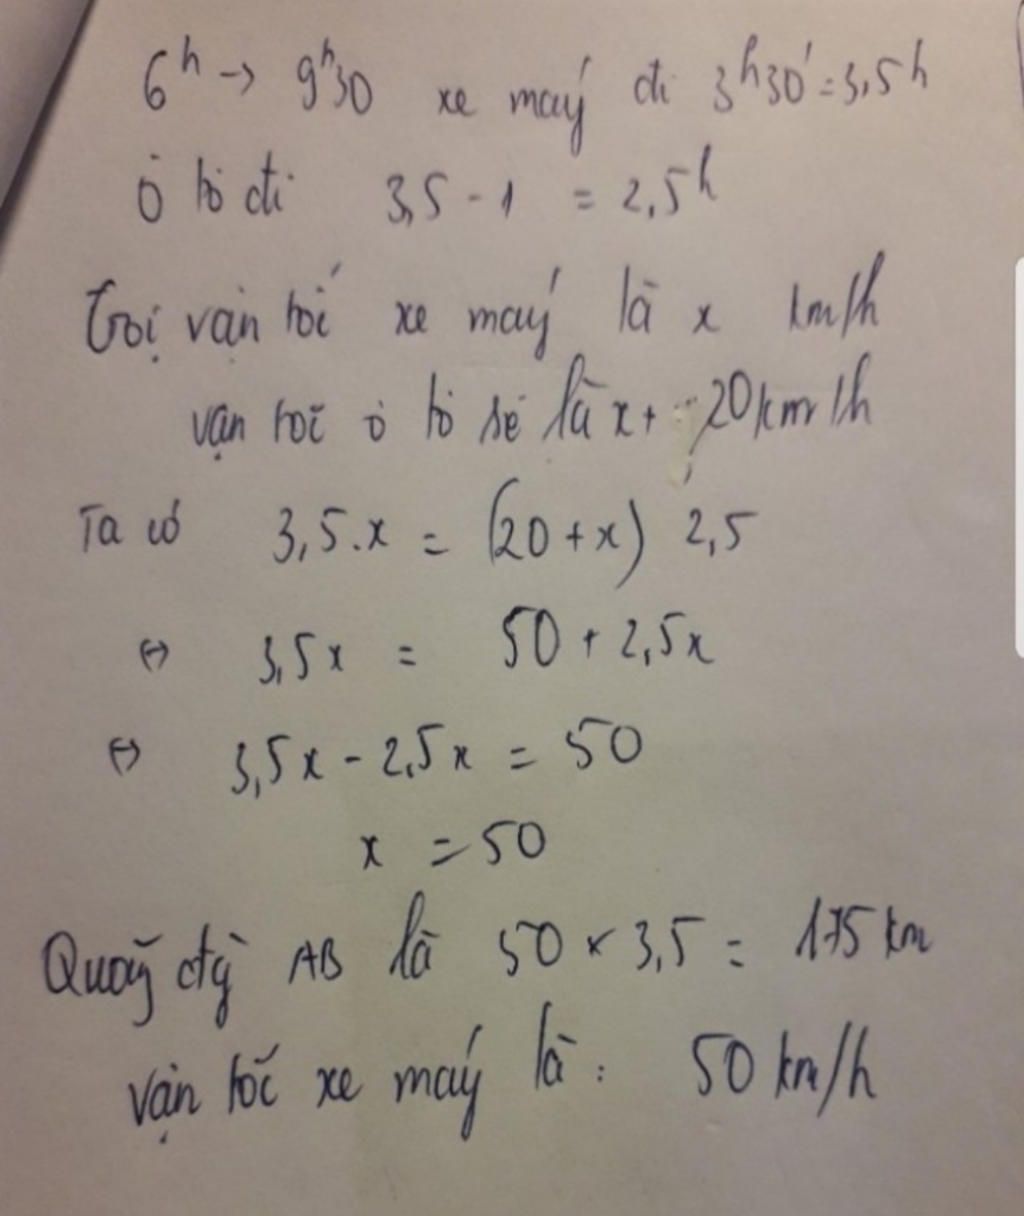 6h → 9h30 xe máy đi 3h30' = 3,5h
Ô tô đi 3,5 - 1 = 2,5h
Gọi vận tốc xe máy là x km/h
vận tốc ô tô sẽ là x + 20km/h
Ta có 3,5.x = (20 + x) 2,5
⇔ 3,5x = 50 + 2,5x
⇔ 3,5x - 2,5x = 50
x = 50
Quãng đg AB là 50 × 3,5 = 175 km
vận tốc xe máy là : 50 km/h